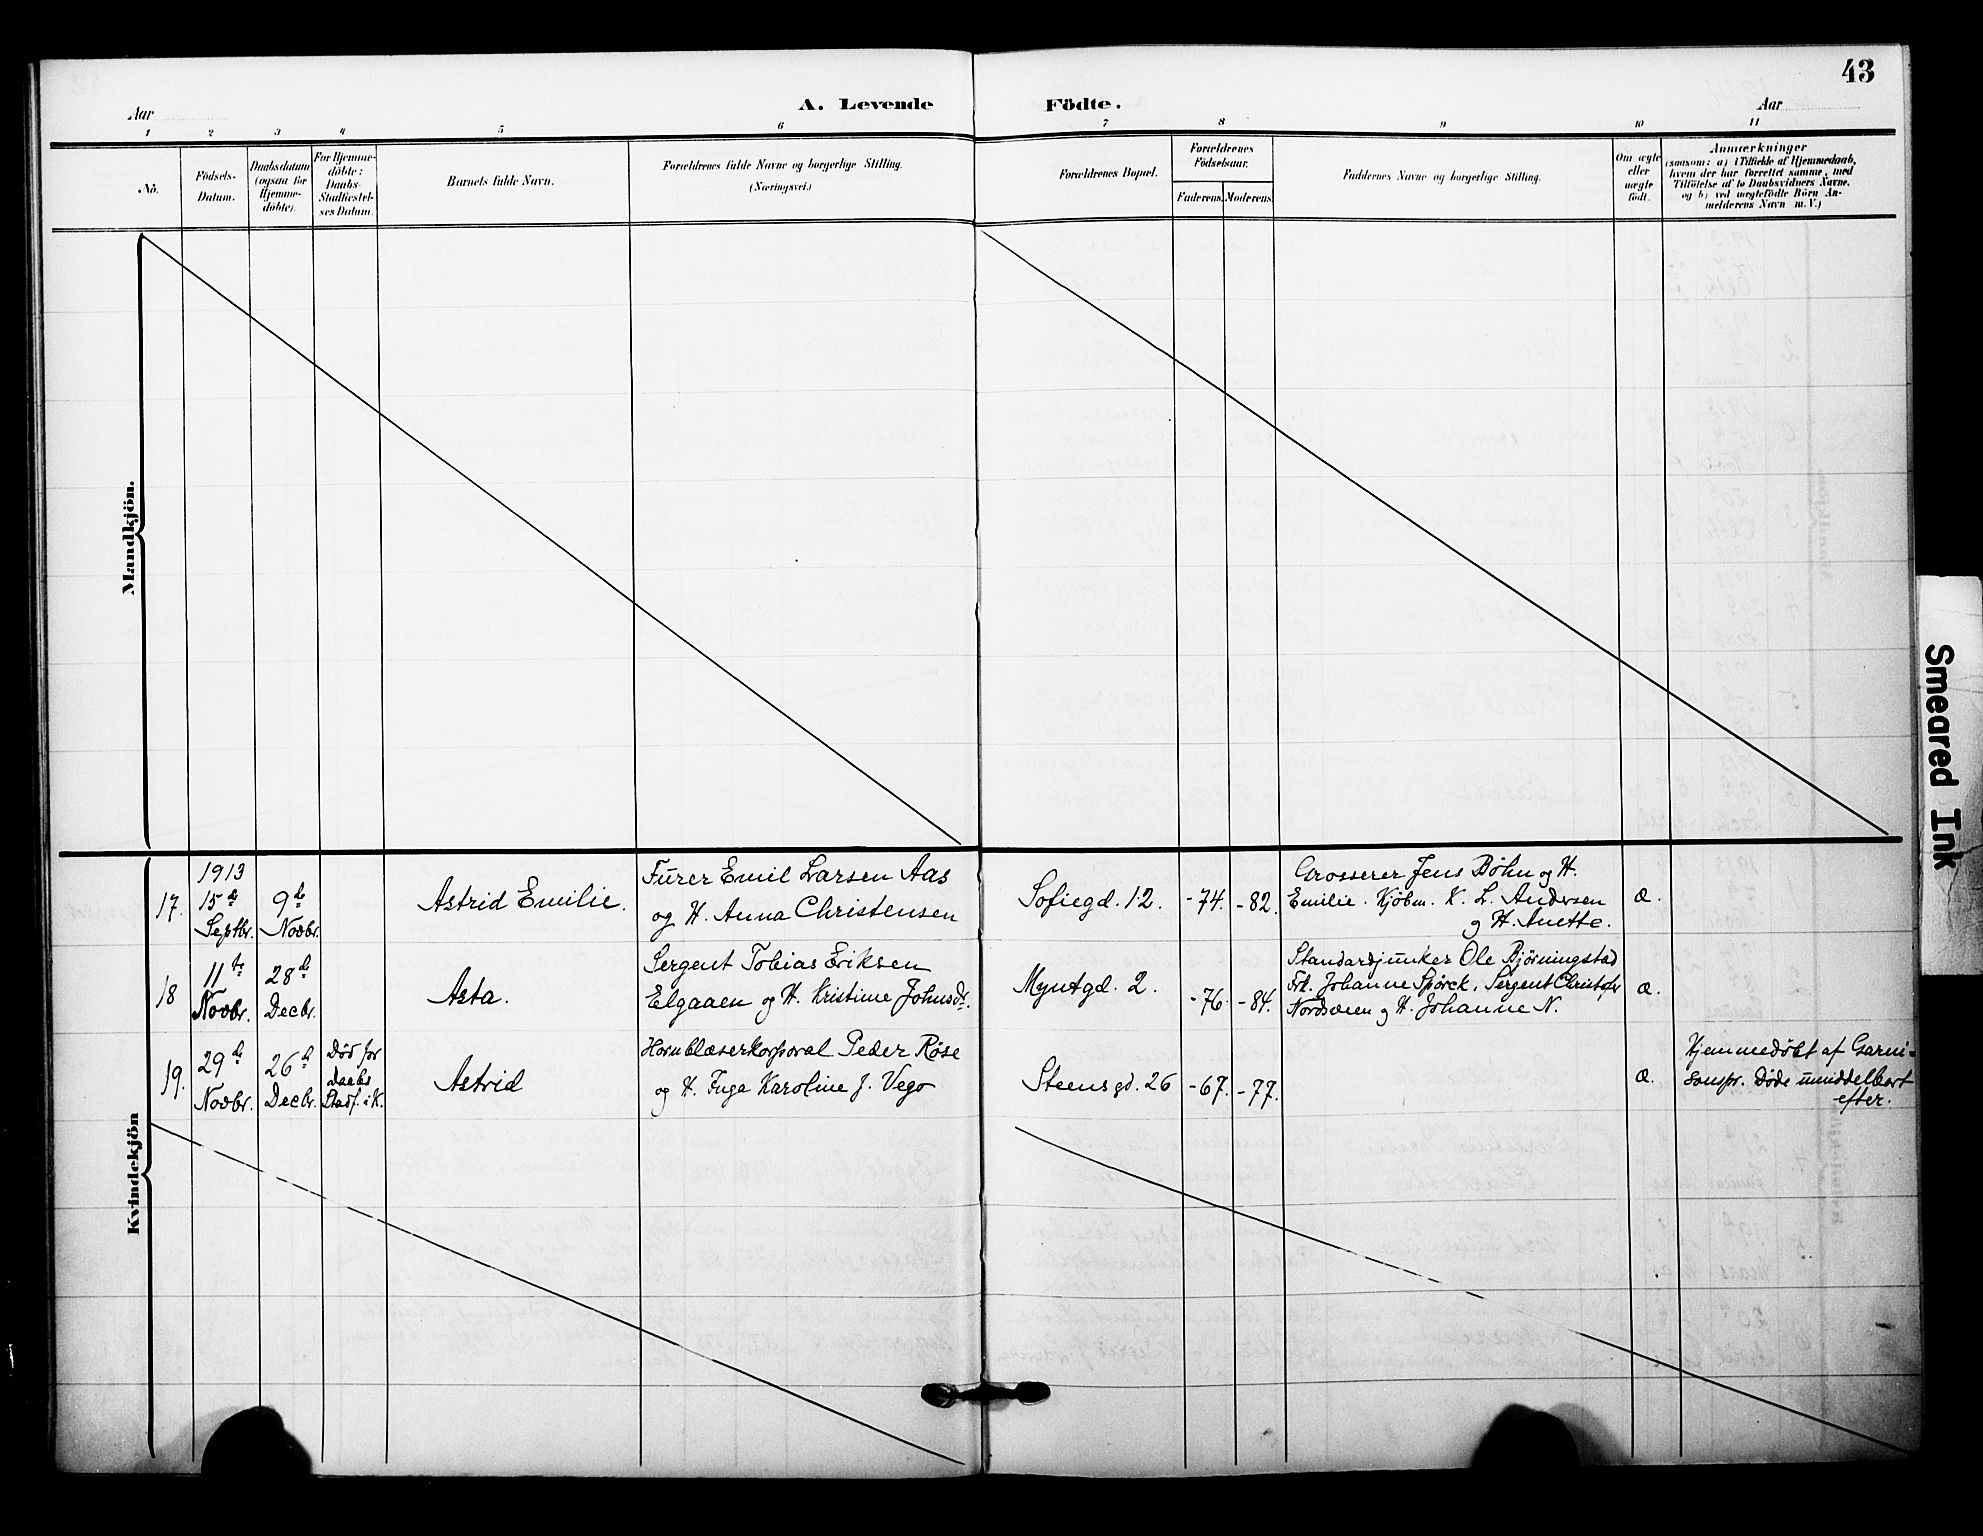 43
A. Levende Födte.
Aar
Aar
1 2 3 4 5 6 7 8 9 10 11
No.
Födsels-
Datum.
Daabsdatum
(ogsaa for
Hjemme-
döbte).
For Hjemme-
döbte:
Daabs-
Stadfæstel-
ses Datum.
Barnets fulde Navn.
Forældrenes fulde Navne og borgerlige Stilling.
(Næringsvei.)
Forældrenes Bopæl.
Forældrenes
Födselsaar.
Faderens. Moderens.
Faddernes Navne og borgerlige Stilling.
Om ægte
eller
uægte
födt.
Anmærkninger
(saasom: a) i Tilfælde af Hjemmedaab,
hvem der har forrettet samme, med
Tilföielse af to Daabsvidners Navne,
og b) ved uægtefödte Börn An-
melderens Navn m. V.)
Mandkjön.
Kvindekjön
17.
1913
15de
Septbr.
9de
Novbr.
Astrid Emilie.
Furer Emil Larsen Aas
og H. Anna Christensen
Sofiegd. 12.
-74. -82.
Grosserer Jens Bøhn og H.
Emilie. Kjøbm. K. L. Andersen
og H. Anette.
æ.
18
11te
Novbr.
28de
Decbr.
Asta.
Sergent Tobias Eriksen
Elgaaen og H. Kristine Johnsdr.
Myntgd. 2.
-76. -84.
Standardjunker Ole Bjørningstad
Frk. Johanne Spörck. Sergent Christofer
Nordsveen og H. Johanne N.
æ.
19.
29de
Novbr.
26de
Decbr.
Död för
Daabs
Stadf. i K.
Astrid
Hornblæserkorporal Peder Røse
og H. Inga Karoline J. Vego
Steensgd. 26
-67. -77.
æ.
Hjemmedöbt af Garni-
sonspr. Döde umiddelbart
efter.
Smeared Ink